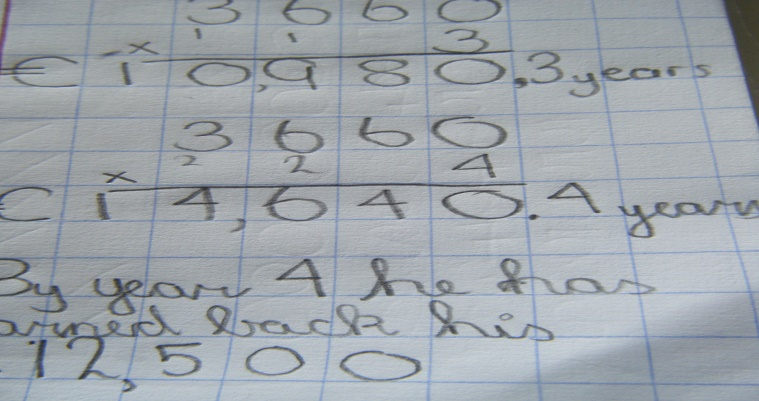 3660
x 1 1 3
€ 10,980. 3 years
3660
x 2 2 4
€ 14,640. 4 years
By year 4 he has
earned back his
12,500